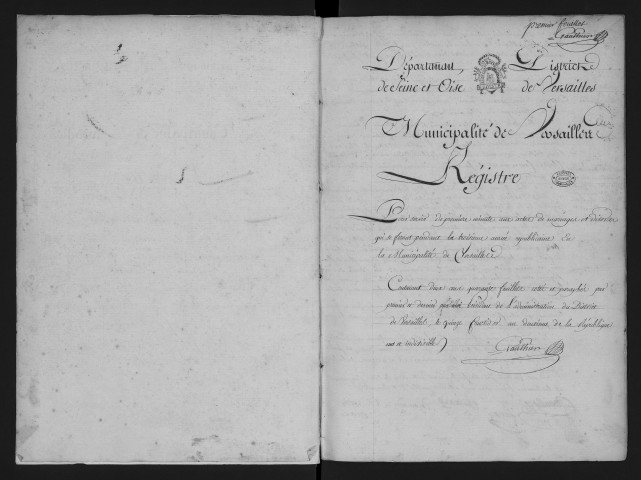 premier feuillet
Gauthier
Département
de Seine et Oise
District
de Versailles
Municipalité de Versailles
Régistre
Pour servir de premiere minute aux actes de mariages et divorces
qui se feront pendant la troisieme année républicaine En
la Municipalité de Versailles
Contenant deux cent quarante feuillets cotés et paraphés par
premier et dernier par nous président de l'administration du District
de Versailles, le quinze fructidor an deuxieme de la République
une et indivisible
Gauthier